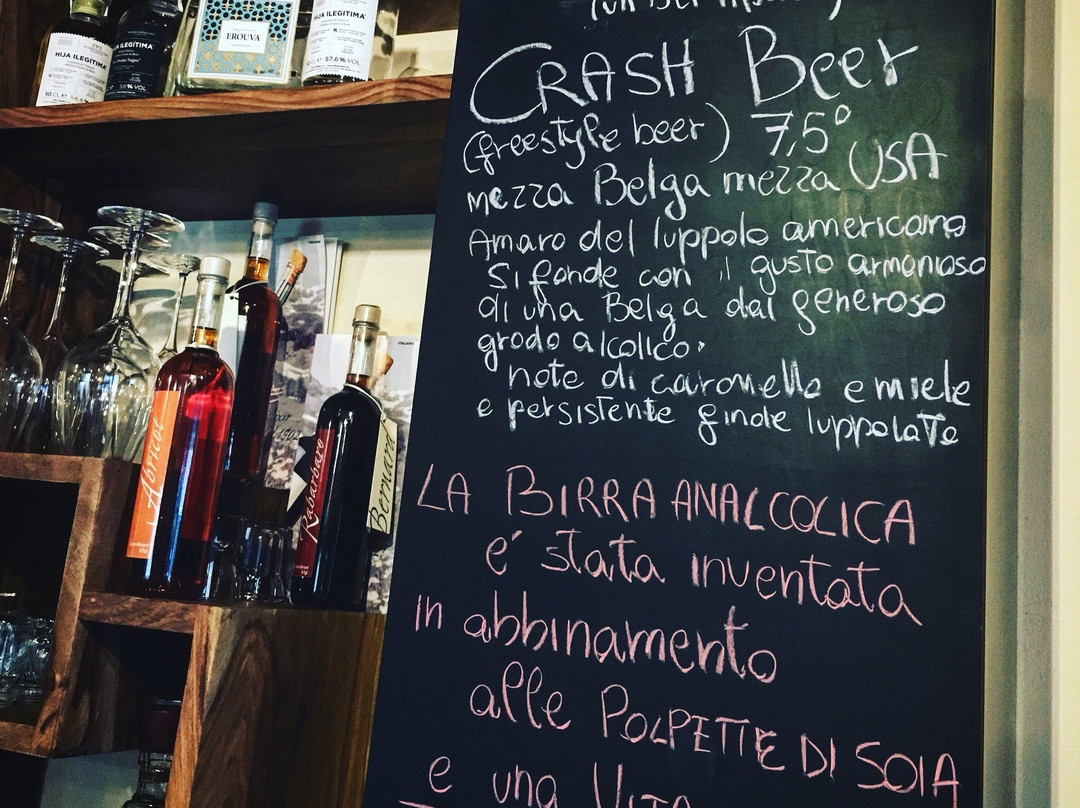 HIJA ILEGÍTIMA
50 CL
HIJA ILEGÍTIMA
58% VOL
EROUVA
HIJA ILEGÍTIMA
57,6% VOL
Abricot
Rabarbaro
Bernard
ITALIANO
CRASH Beer
(freestyle beer) 7,5°
mezza Belga mezza USA
Amaro del luppolo americano
si fonde con il gusto armonioso
di una Belga dal generoso
grado alcolico.
note di caramello e miele
e persistente finale luppolato
LA BIRRA ANALCOLICA
e' stata inventata
in abbinamento
alle POLPETTE DI SOIA
e una VITA